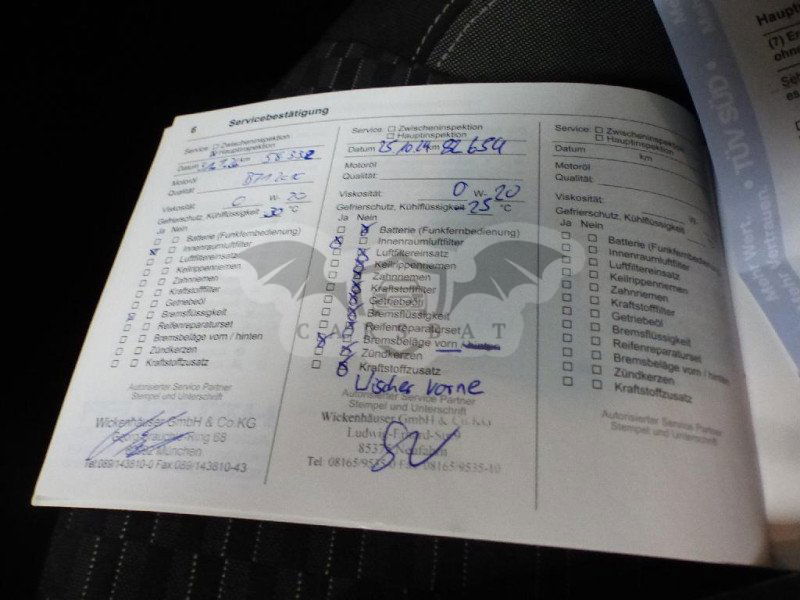 6 Servicebestätigung
Service: Zwischeninspektion
Hauptinspektion
Datum km 58 332
Motoröl
Qualität:
Viskosität: 0 W- 20
Gefrierschutz, Kühlflüssigkeit 30 °C
Ja Nein
Batterie (Funkfernbedienung)
Innenraumluftfilter
Luftfiltereinsatz
Keilrippenriemen
Zahnriemen
Kraftstofffilter
Getriebeöl
Bremsflüssigkeit
Reifenreparaturset
Bremsbeläge vorn / hinten
Zündkerzen
Kraftstoffzusatz
Autorisierter Service Partner
Stempel und Unterschrift
Wickenhäuser GmbH & Co.KG
Ring 68
München
Tel.089/143810-0 Fax 089/143810-43
Service: Zwischeninspektion
Hauptinspektion
Datum 25.10.24 km 92 654
Motoröl
Qualität:
Viskosität: 0 W- 20
Gefrierschutz, Kühlflüssigkeit 25 °C
Ja Nein
Batterie (Funkfernbedienung)
Innenraumluftfilter
Luftfiltereinsatz
Keilrippenriemen
Zahnriemen
Kraftstofffilter
Getriebeöl
Bremsflüssigkeit
Reifenreparaturset
Bremsbeläge vorn / hinten
Zündkerzen
Kraftstoffzusatz
Wischer vorne
Autorisierter Service Partner
Stempel und Unterschrift
Wickenhäuser GmbH & Co.KG
Neufahrn
Tel: 08165/9535-0 Fax 08165/9535-10
Service: Zwischeninspektion
Hauptinspektion
Datum km
Motoröl
Qualität:
Viskosität: W-
Gefrierschutz, Kühlflüssigkeit °C
Ja Nein
Batterie (Funkfernbedienung)
Innenraumluftfilter
Luftfiltereinsatz
Keilrippenriemen
Zahnriemen
Kraftstofffilter
Getriebeöl
Bremsflüssigkeit
Reifenreparaturset
Bremsbeläge vorn / hinten
Zündkerzen
Kraftstoffzusatz
Autorisierter Service Partner
Stempel und Unterschrift
CAR BAT
(7)
ohne
TÜV SÜD